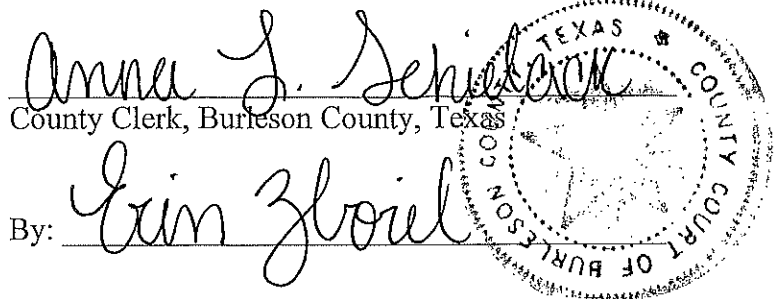 Anna L. Schielack
County Clerk, Burleson County, Texas
By: Erin Zboril
COUNTY COURT OF BURLESON COUNTY TEXAS